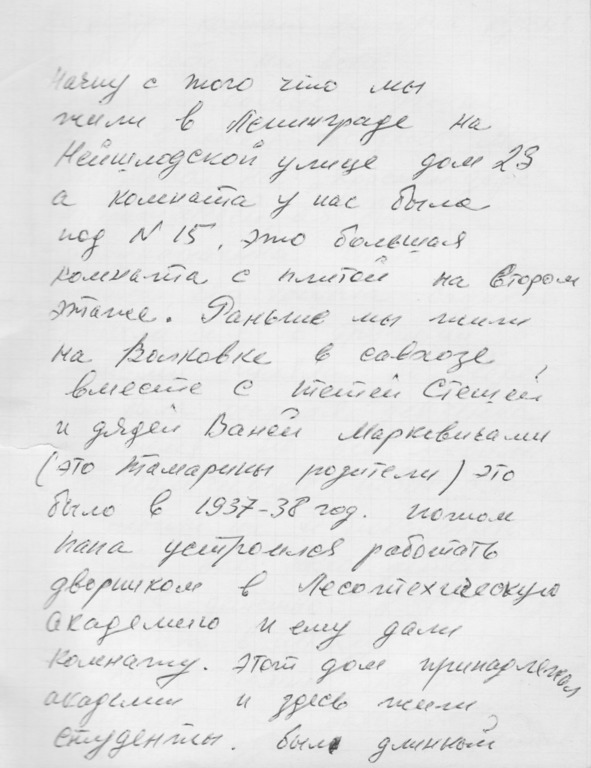 Начну с того что мы
жили в Ленинграде на
Нейшлодской улице дом 23
а комната у нас была
под N 15, это большая
комната с плитой на втором
этаже. Раньше мы жили
на Волковке в савхозе,
вместе с тетей Стешей
и дядей Ваней Марковичами
(это Тамарины родители) это
было в 1937-38 год. потом
папа устроился работать
дворником в Лесотехническую
академию и ему дали
комнату. этот дом принадлежал
академии и здесь жили
студенты. был длинной